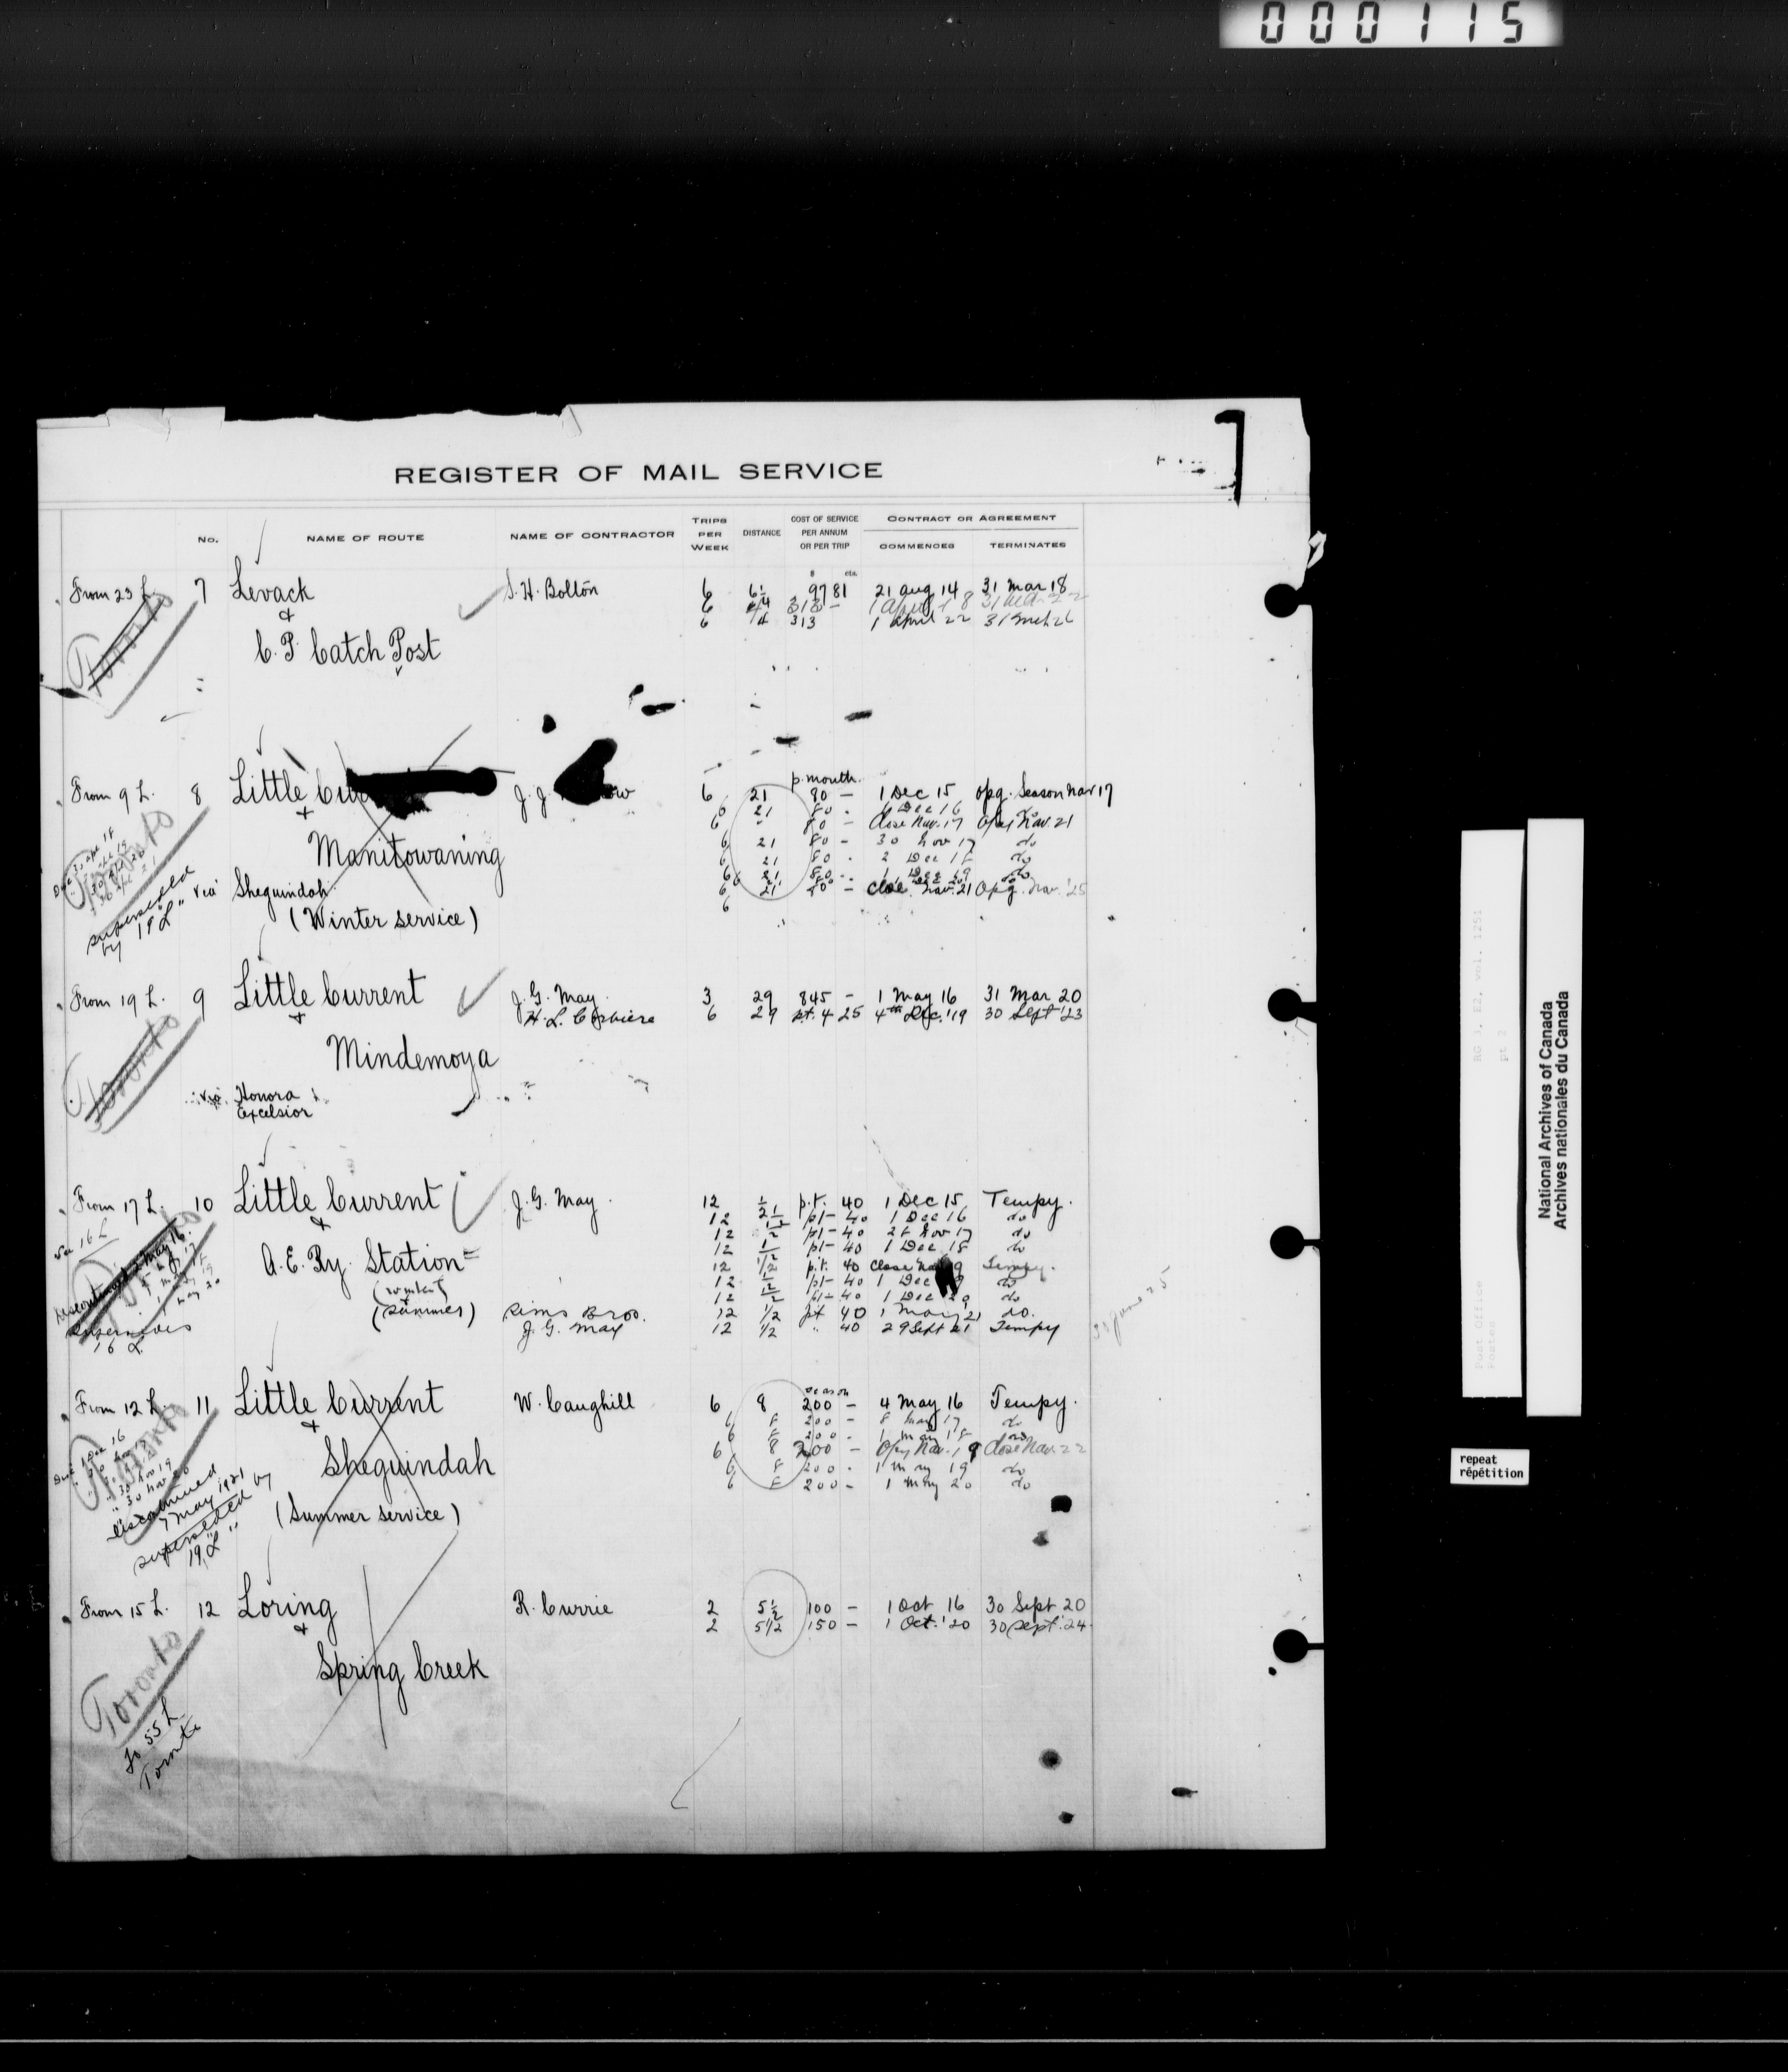 000115
REGISTER OF MAIL SERVICE
No. NAME OF ROUTE NAME OF CONTRACTOR TRIPS PER WEEK DISTANCE COST OF SERVICE PER ANNUM OR PER TRIP CONTRACT OR AGREEMENT COMMENCES TERMINATES
$ cts.
From 23 L. 7 Levack S. H. Bolton 6 97 81 21 Aug 14 31 Mar 18
& 6 1/4 313 - 1 April 18 31 Mar 22
6 1/4 313 1 April 22 31 Mch 26
C. P. Catch Post
Toronto
p. month
From 9 L. 8 Little J. J. 6 21 80 - 1 Dec 15 opg. Season Nav 17
& 6 21 80 - 1 Dec 16 do
6 " 80 - close Nav. 17 Opg Nav. 21
Manitowaning 6 21 80 - 30 Nov 17 do
6 21 80 - 2 Dec 18 do
6 21 80 - 1 Dec 19 do
via Sheguindah 6 21 80 - close Nav. 21 Opg. Nav. '25
(Winter service) 6
Toronto
superseded
by 19 "L"
From 19 L. 9 Little Current J. G. May 3 29 845 - 1 May 16 31 Mar 20
& H. L. Corbiere 6 29 pt. 4 25 4th Dec. '19 30 Sept '23
Mindemoya
Toronto
via Honora
Excelsior
From 17 L. 10 Little Current J. G. May. 12 1/2 p.t. 40 1 Dec 15 Tempy.
& 12 1/2 pt- 40 1 Dec 16 do
12 1/2 pt- 40 28 Nov 17 do
A. E. Ry. Station 12 1/2 pt- 40 1 Dec 18 do
12 1/2 p.t. 40 close Tempy.
(winter) 12 1/2 pt- 40 1 Dec do
12 1/2 pt- 40 1 Dec 20 do
(Summer) Sims Bros. 12 1/2 pt 40 1 May 21 do.
J. G. May 12 1/2 " 40 29 Sept 21 Tempy
Discontinued 2 May 16.
supersedes
16 L.
season
From 12 L. 11 Little Current W. Caughill 6 8 200 - 4 May 16 Tempy.
& 6 8 200 - 8 May 17 do
6 8 200 - 1 May 18 do
Sheguindah 6 8 200 - Opg Nav. 19 close Nav. 22
6 8 200 - 1 May 19 do
6 8 200 - 1 May 20 do
(Summer service)
Toronto
discontinued
7 May 1921
superseded by
19 "L"
From 15 L. 12 Loring R. Currie 2 5 1/2 100 - 1 Oct 16 30 Sept 20
& 2 5 1/2 150 - 1 Oct. '20 30 Sept. '24
Spring Creek
Toronto
To 55 L
Toronto
RG 3, E2, vol. 1251
pt 2
Post Office
Postes
National Archives of Canada
Archives nationales du Canada
repeat
répétition